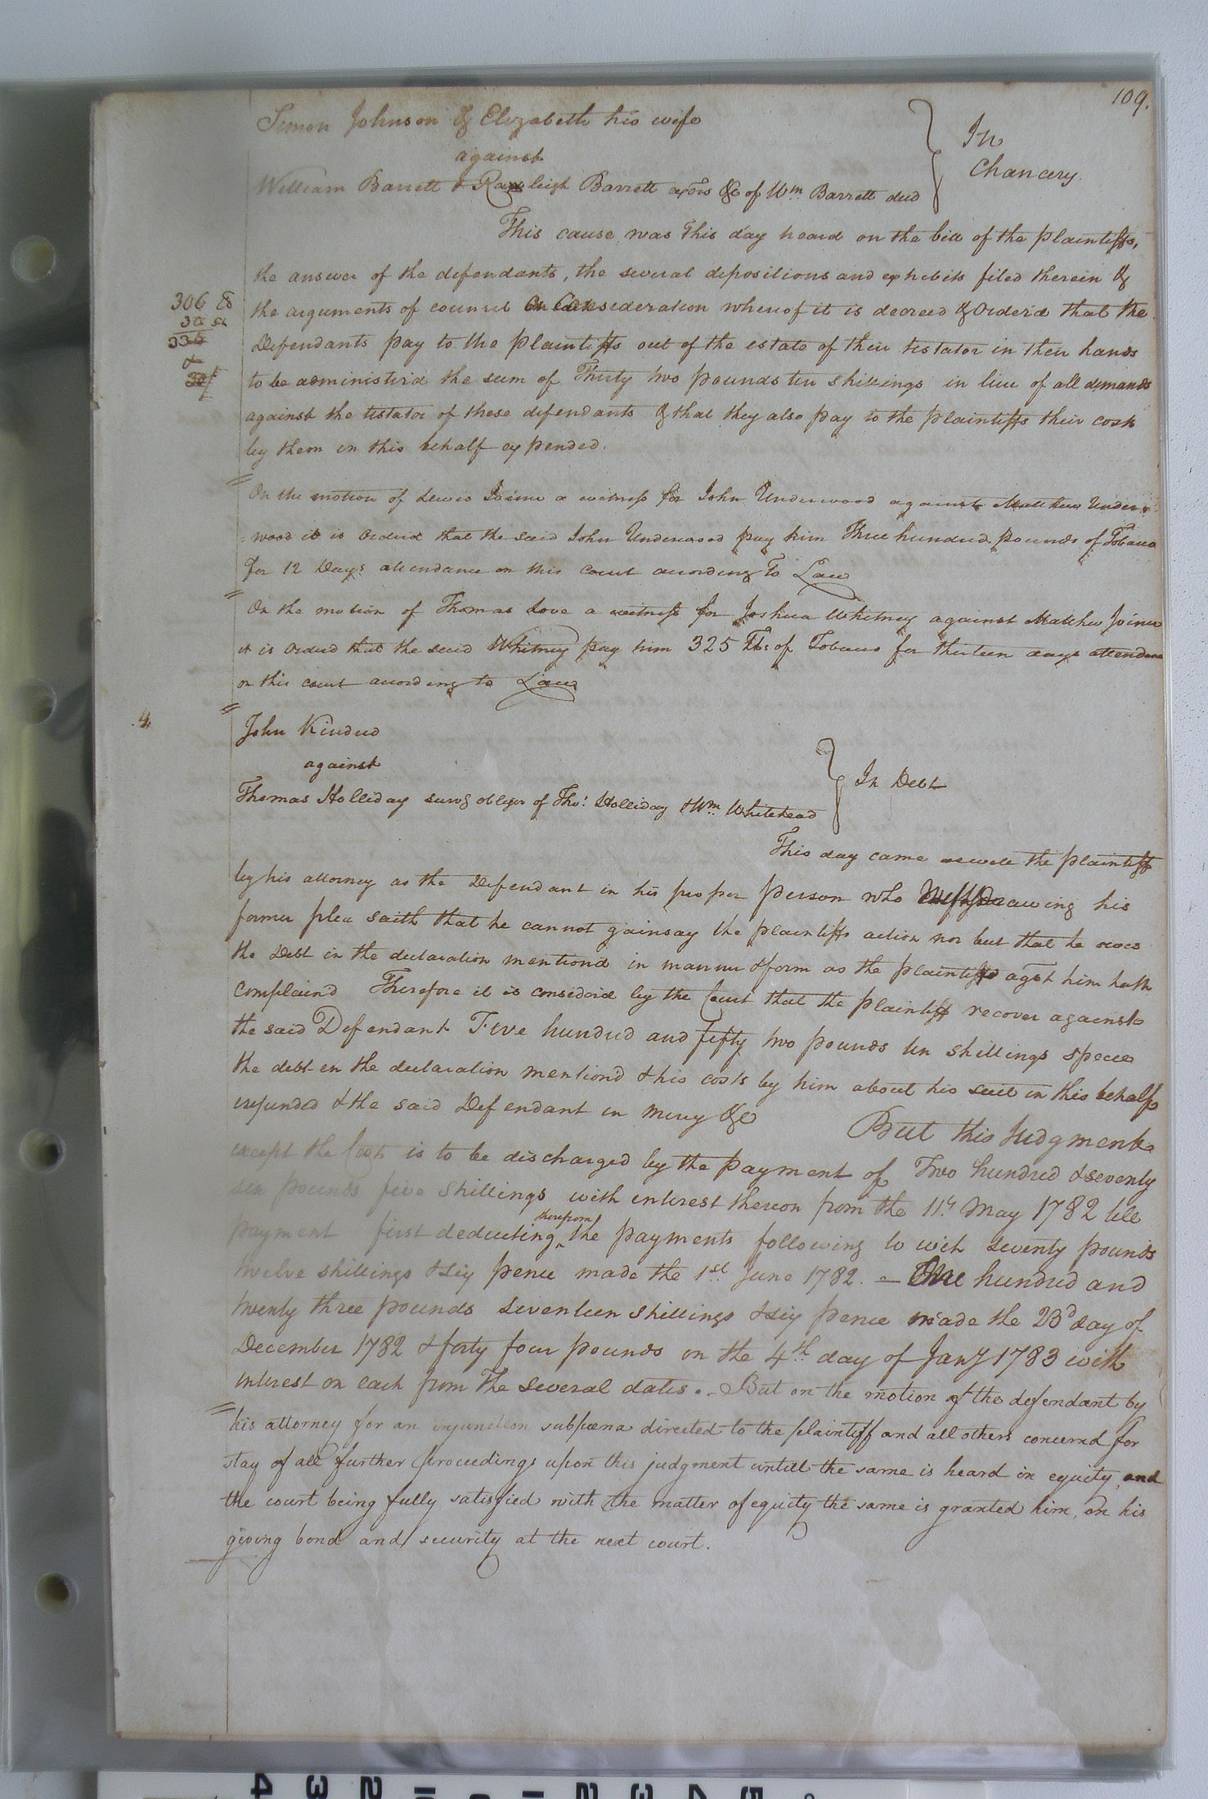 109.
Simon Johnson & Elizabeth his wife
against
William Barrett & Rawleigh Barrett exors &c of Wm Barrett decd
} In Chancery.
This cause was this day heard on the bill of the plaintiffs,
the answer of the defendants, the several depositions and exhibits filed therein &
306
30
336
the arguments of council On Consideration whereof it is decreed & Orderd that the
Defendants pay to the plaintiffs out of the estate of their testator in their hands
to be administerd the sum of Thirty two pounds ten shillings in lieu of all demands
against the testator of these defendants & that they also pay to the plaintiffs their costs
by them in this behalf expended.
On the motion of Lewis Joiner a witness for John Underwood against Matthew Under=
=wood it is Orderd that the said John Underwood pay him Three hundred pounds of Tobacco
for 12 Days attendance on this court according To Law
On the motion of Thomas Love a witness for Joshua Whitney against Matthew Joiner
it is Orderd that the said Whitney pay him 325 lbs of Tobacco for thirteen days attendance
on this court according to Law
4.
John Kindred
against
Thomas Holliday survg obligor of Thos Holliday & Wm Whitehead
} In Debt
This day came aswell the plaintiff
by his attorney as the Defendant in his proper person who Withdrawing his
former plea saith that he cannot gainsay the plaintiffs action nor but that he owes
the Debt in the declaration mentiond in manner & form as the plaintiff agst him hath
complaind Therefore it is considerd by the Court that the plaintiff recover against
the said Defendant Five hundred and fifty two pounds ten shillings specie
the debt in the declaration mentiond & his costs by him about his suit in this behalf
expended & the said Defendant in mercy &c But this Judgment
except the Costs is to be discharged by the payment of Two hundred & seventy
six pounds five shillings with interest thereon from the 11th May 1782 till
payment first deducting therefrom the payments following to wit seventy pounds
twelve shillings & six pence made the 1st June 1782. — One hundred and
twenty three pounds seventeen shillings & six pence made the 23d day of
December 1782 & forty four pounds on the 4th day of Jany 1783 with
interest on each from the several dates. — But on the motion of the defendant by
his attorney for an injunction subpœna directed to the plaintiff and all others concernd for
stay of all further proceedings upon this judgment untill the same is heard in equity, and
the court being fully satisfied with the matter of equity the same is granted him, on his
giving bond and security at the next court.